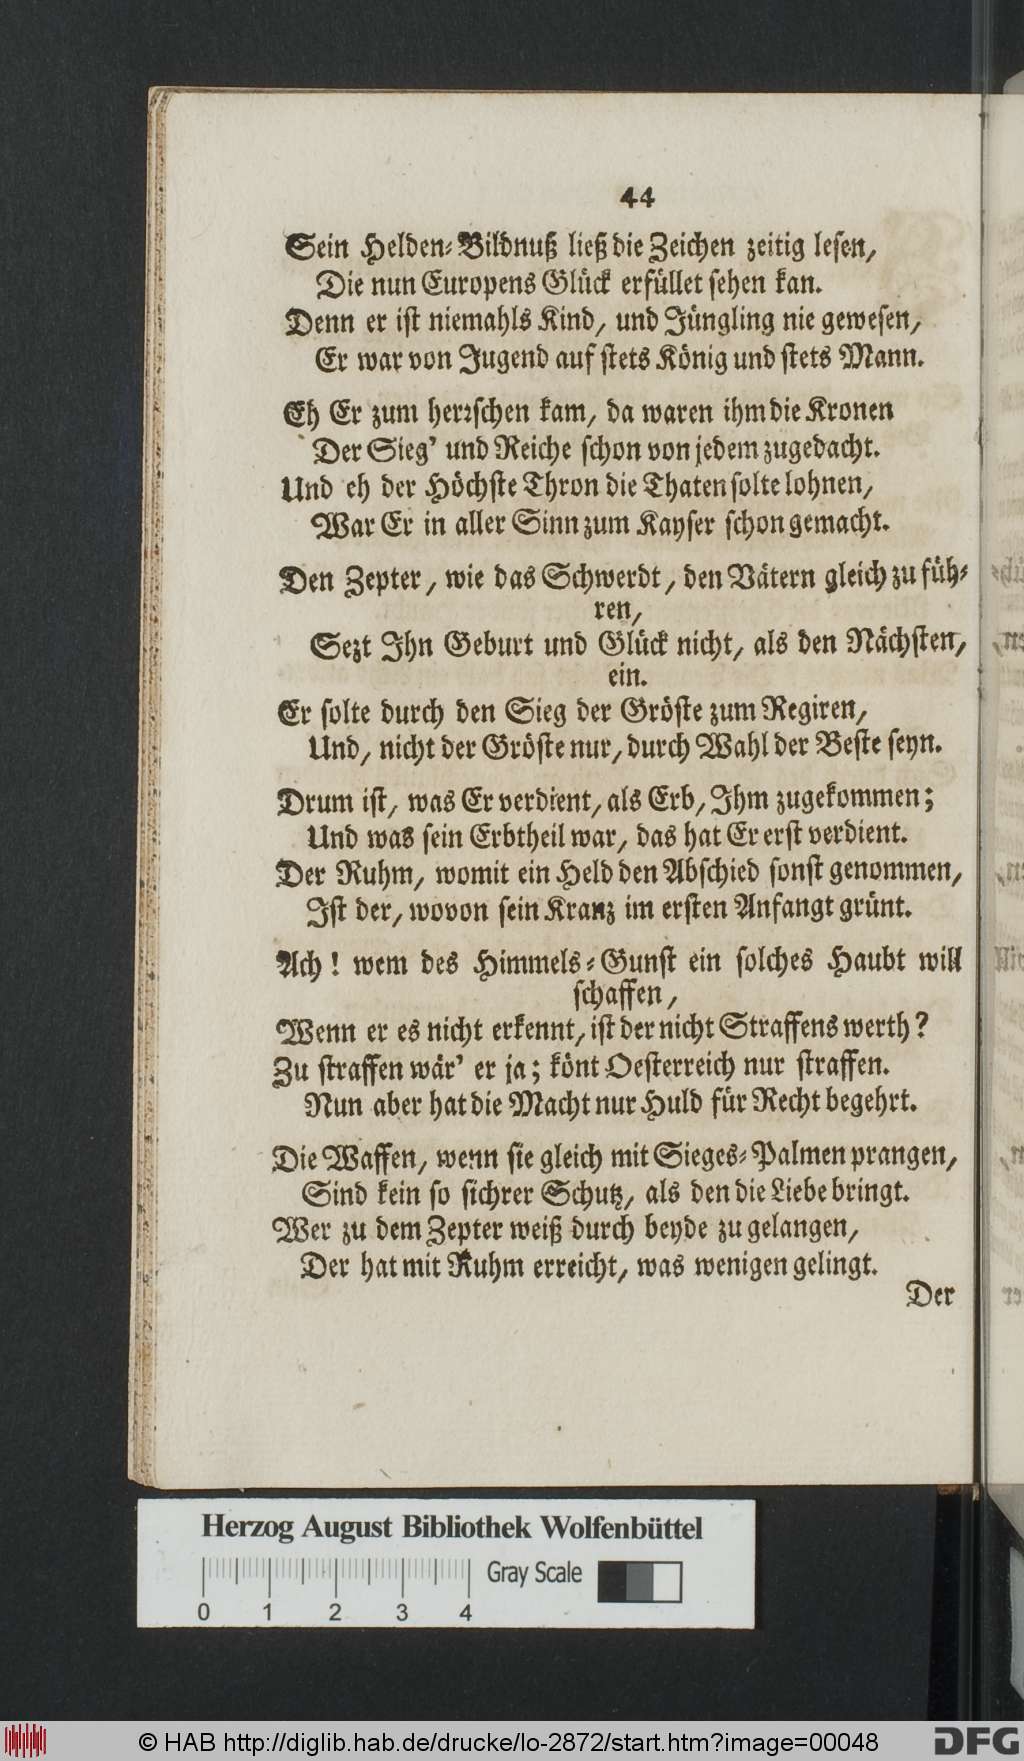 44
Sein Helden-Bildnuß ließ die Zeichen zeitig lesen,
Die nun Europens Glück erfüllet sehen kan.
Denn er ist niemahls Kind, und Jüngling nie gewesen,
Er war von Jugend auf stets König und stets Mann.
Eh Er zum herrschen kam, da waren ihm die Kronen
Der Sieg' und Reiche schon von jedem zugedacht.
Und eh der Höchste Thron die Thaten solte lohnen,
War Er in aller Sinn zum Kayser schon gemacht.
Den Zepter, wie das Schwerdt, den Vätern gleich zu füh-
ren,
Sezt Ihn Geburt und Glück nicht, als den Nächsten,
ein.
Er solte durch den Sieg der Gröste zum Regiren,
Und, nicht der Gröste nur, durch Wahl der Beste seyn.
Drum ist, was Er verdient, als Erb, Ihm zugekommen;
Und was sein Erbtheil war, das hat Er erst verdient.
Der Ruhm, womit ein Held den Abschied sonst genommen,
Ist der, wovon sein Kranz im ersten Anfangt grünt.
Ach! wem des Himmels-Gunst ein solches Haubt will
schaffen,
Wenn er es nicht erkennt, ist der nicht Straffens werth?
Zu straffen wär' er ja; könt Oesterreich nur straffen.
Nun aber hat die Macht nur Huld für Recht begehrt.
Die Waffen, wenn sie gleich mit Sieges-Palmen prangen,
Sind kein so sichrer Schutz, als den die Liebe bringt.
Wer zu dem Zepter weiß durch beyde zu gelangen,
Der hat mit Ruhm erreicht, was wenigen gelingt.
Der
Herzog August Bibliothek Wolfenbüttel
Gray Scale
0 1 2 3 4
© HAB http://diglib.hab.de/drucke/lo-2872/start.htm?image=00048
DFG